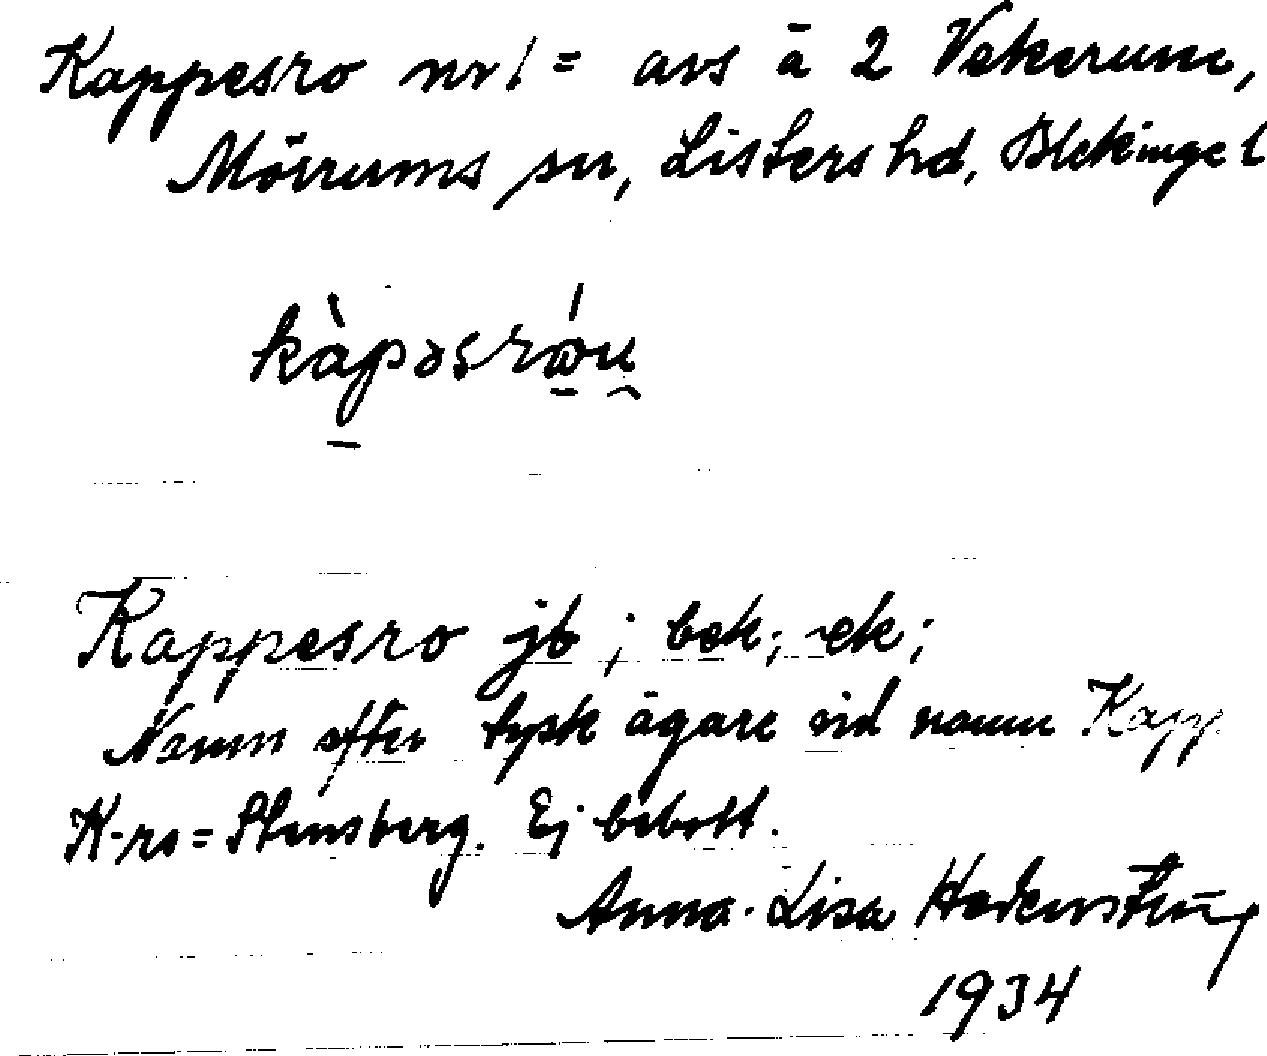 Kappesro nr 1 = avs å 2 Vekerum,
Mörrums sn, Listers hd, Blekinge l
kàpəsrǻu
Kappesro jb; bek; ek;
Namn efter tysk ägare vid namn Kapp
K-ro = Stensberg. Ej bebott.
Anna-Lisa
1934